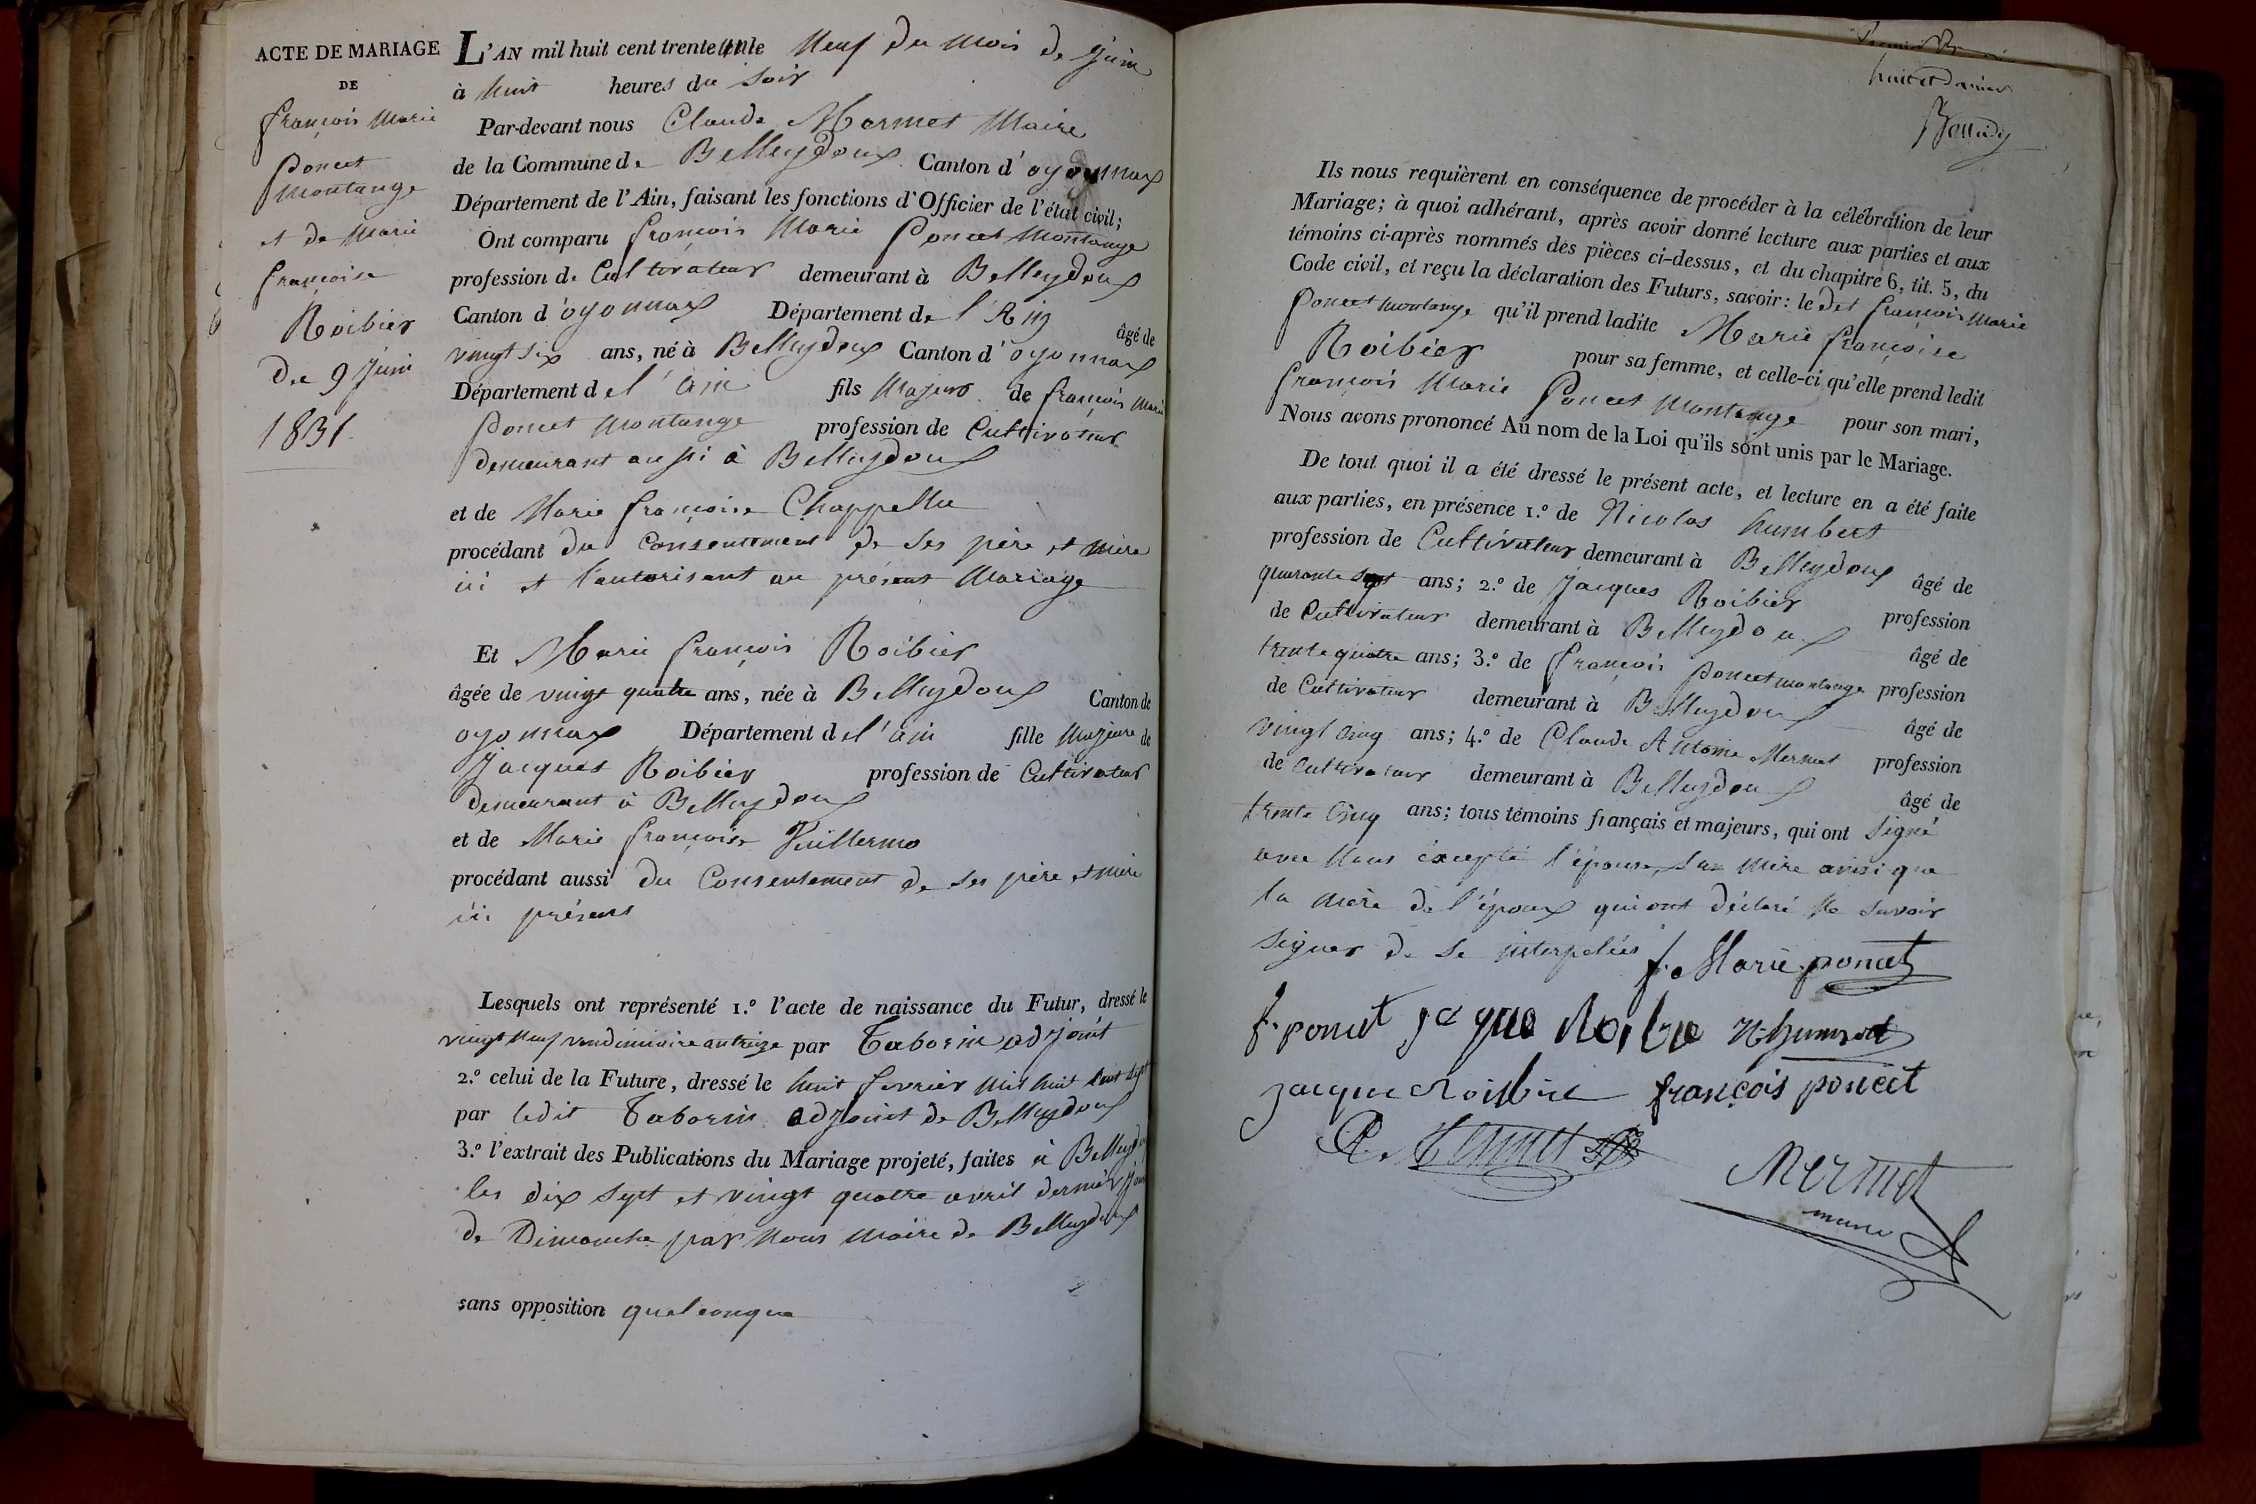 ACTE DE MARIAGE
DE
françois Marie
Poncet
Montange
et de Marie
françoise
Roibier
Du 9 Juin
1831.
L'AN mil huit cent trente un le Neuf du Mois de Juin
à huit heures du soir
Par-devant nous Claude Mermet Maire
de la Commune de Belleydoux Canton d'oyonnax
Département de l'Ain, faisant les fonctions d'Officier de l'état civil;
Ont comparu françois Marie Poncet Montange
profession de Cultivateur demeurant à Belleydoux
Canton d'oyonnax Département de l'Ain âgé de
vingt six ans, né à Belleydoux Canton d'oyonnax
Département de l'ain fils Majeur de françois Marie
Poncet Montange profession de Cultivateur
demeurant aussi à Belleydoux
et de Marie françoise Chappellu
procédant du Consentement de ses père et mère
ici et l'autorisant au présent Mariage
Et Marie françois Roibier
âgée de vingt quatre ans, née à Belleydoux Canton de
oyonnax Département de l'ain fille Majeure de
Jacques Roibier profession de Cultivateur
demeurant à Belleydoux
et de Marie françoise Vuillermo
procédant aussi du Consentement de ses père et mère
ici présens
Lesquels ont représenté 1.º l'acte de naissance du Futur, dressé le
vingt neuf vendimiaire an treize par Taborin adjoint
2.º celui de la Future, dressé le huit fevrier mil huit cent sept
par ledit Taborin adjoint de Belleydoux
3.º l'extrait des Publications du Mariage projeté, faites à Belleydoux
les dix sept et vingt quatre avril dernier jour
de Dimanche par Nous Maire de Belleydoux
sans opposition quelconque
huit et dernier
Ils nous requièrent en conséquence de procéder à la célébration de leur
Mariage; à quoi adhérant, après avoir donné lecture aux parties et aux
témoins ci-après nommés des pièces ci-dessus, et du chapitre 6, tit. 5, du
Code civil, et reçu la déclaration des Futurs, savoir: le dit françois Marie
Poncet Montange qu'il prend ladite Marie françoise
Roibier pour sa femme, et celle-ci qu'elle prend ledit
françois Marie Poncet Montange pour son mari,
Nous avons prononcé Au nom de la Loi qu'ils sont unis par le Mariage.
De tout quoi il a été dressé le présent acte, et lecture en a été faite
aux parties, en présence 1.º de Nicolas humbert
profession de Cultivateur demeurant à Belleydoux âgé de
quarante sept ans; 2.º de Jacques Roibier profession
de Cultivateur demeurant à Belleydoux âgé de
trente quatre ans; 3.º de françois Poncet montange profession
de Cultivateur demeurant à Belleydoux âgé de
vingt cinq ans; 4.º de Claude Antoine Mermet profession
de Cultivateur demeurant à Belleydoux âgé de
trente cinq ans; tous témoins français et majeurs, qui ont signé
avec Nous excepté l'épouse, sa mère ainsi que
la mère de l'époux qui ont déclaré ne savoir
signer de ce interpelées
f. Marie poncet
f. poncet jacque Roibie N humbert
jacque Roisbie françois poncet
Mermet
Mermet
maire